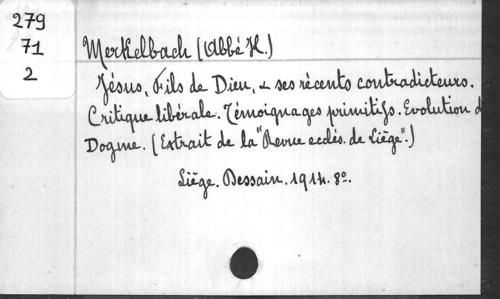 279
71
2
Merkelbach (Abbé H.)
Jésus, Fils de Dieu, & ses récents contradicteurs.
Critique libérale. Témoignages primitifs. Evolution d
Dogme. (Extrait de la "Revue ecclés. de Liège".)
Liège. Dessain. 1914. 8º.